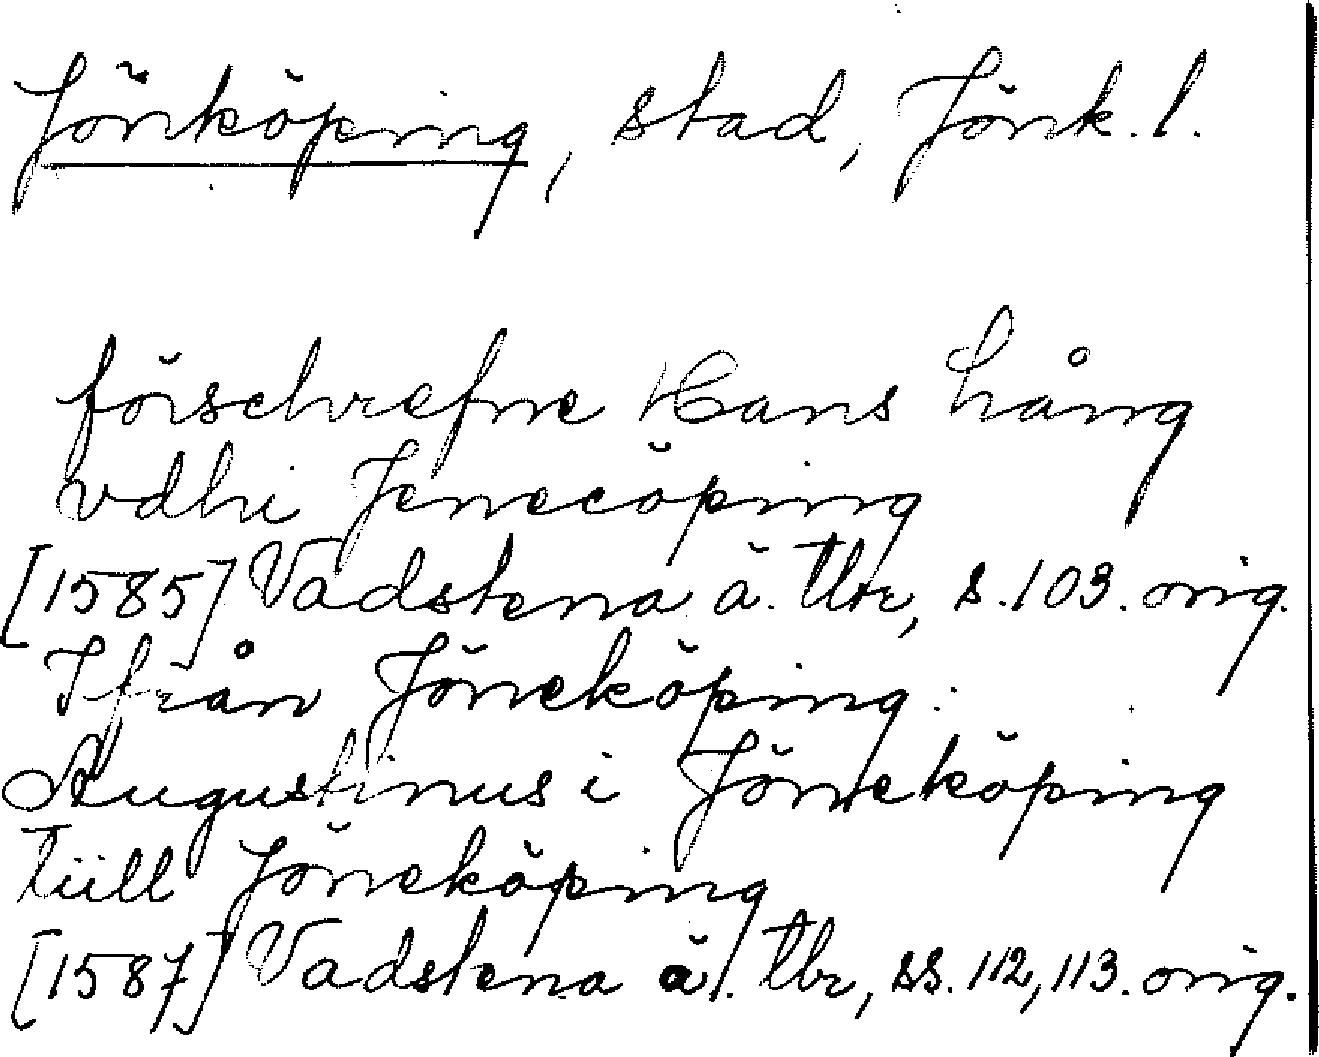 Jönköping, stad, Jönk. l.
förschrefne Hans Lång
vdhi Jenecöping
[1585] Vadstena ä. tbr, s. 103. orig.
Ifrån Jöneköping.
Augustinus i Jöneköping
tiill Jöneköping
[1587] Vadstena ä. tbr, ss. 112, 113. orig.